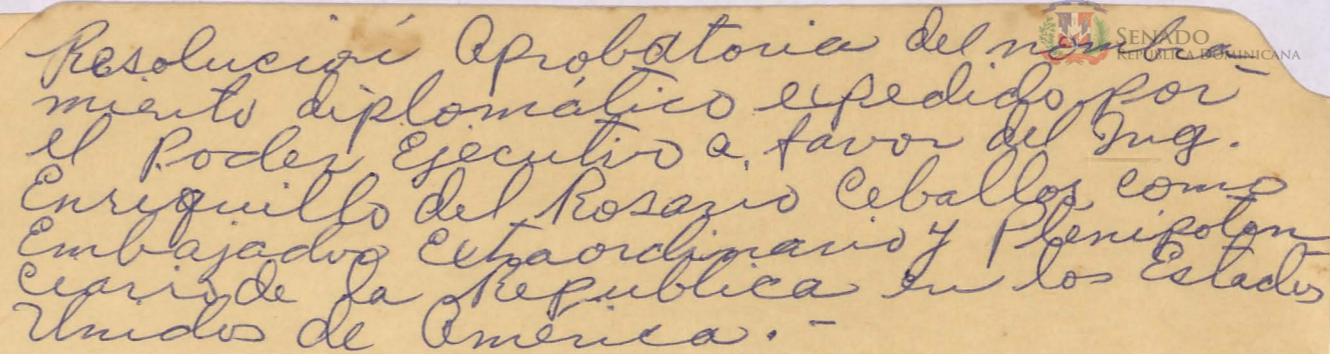 Resolución Aprobatoria del nombra
miento diplomático expedido por
el Poder Ejecutivo a favor del Ing.
Enriquillo del Rosario Ceballos como
Embajador Extraordinario y Plenipoten
ciario de la República en los Estados
Unidos de América.-
SENADO
REPÚBLICA DOMINICANA